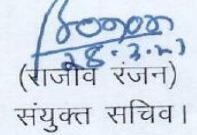 28.3.23
(राजीव रंजन)
संयुक्त सचिव।